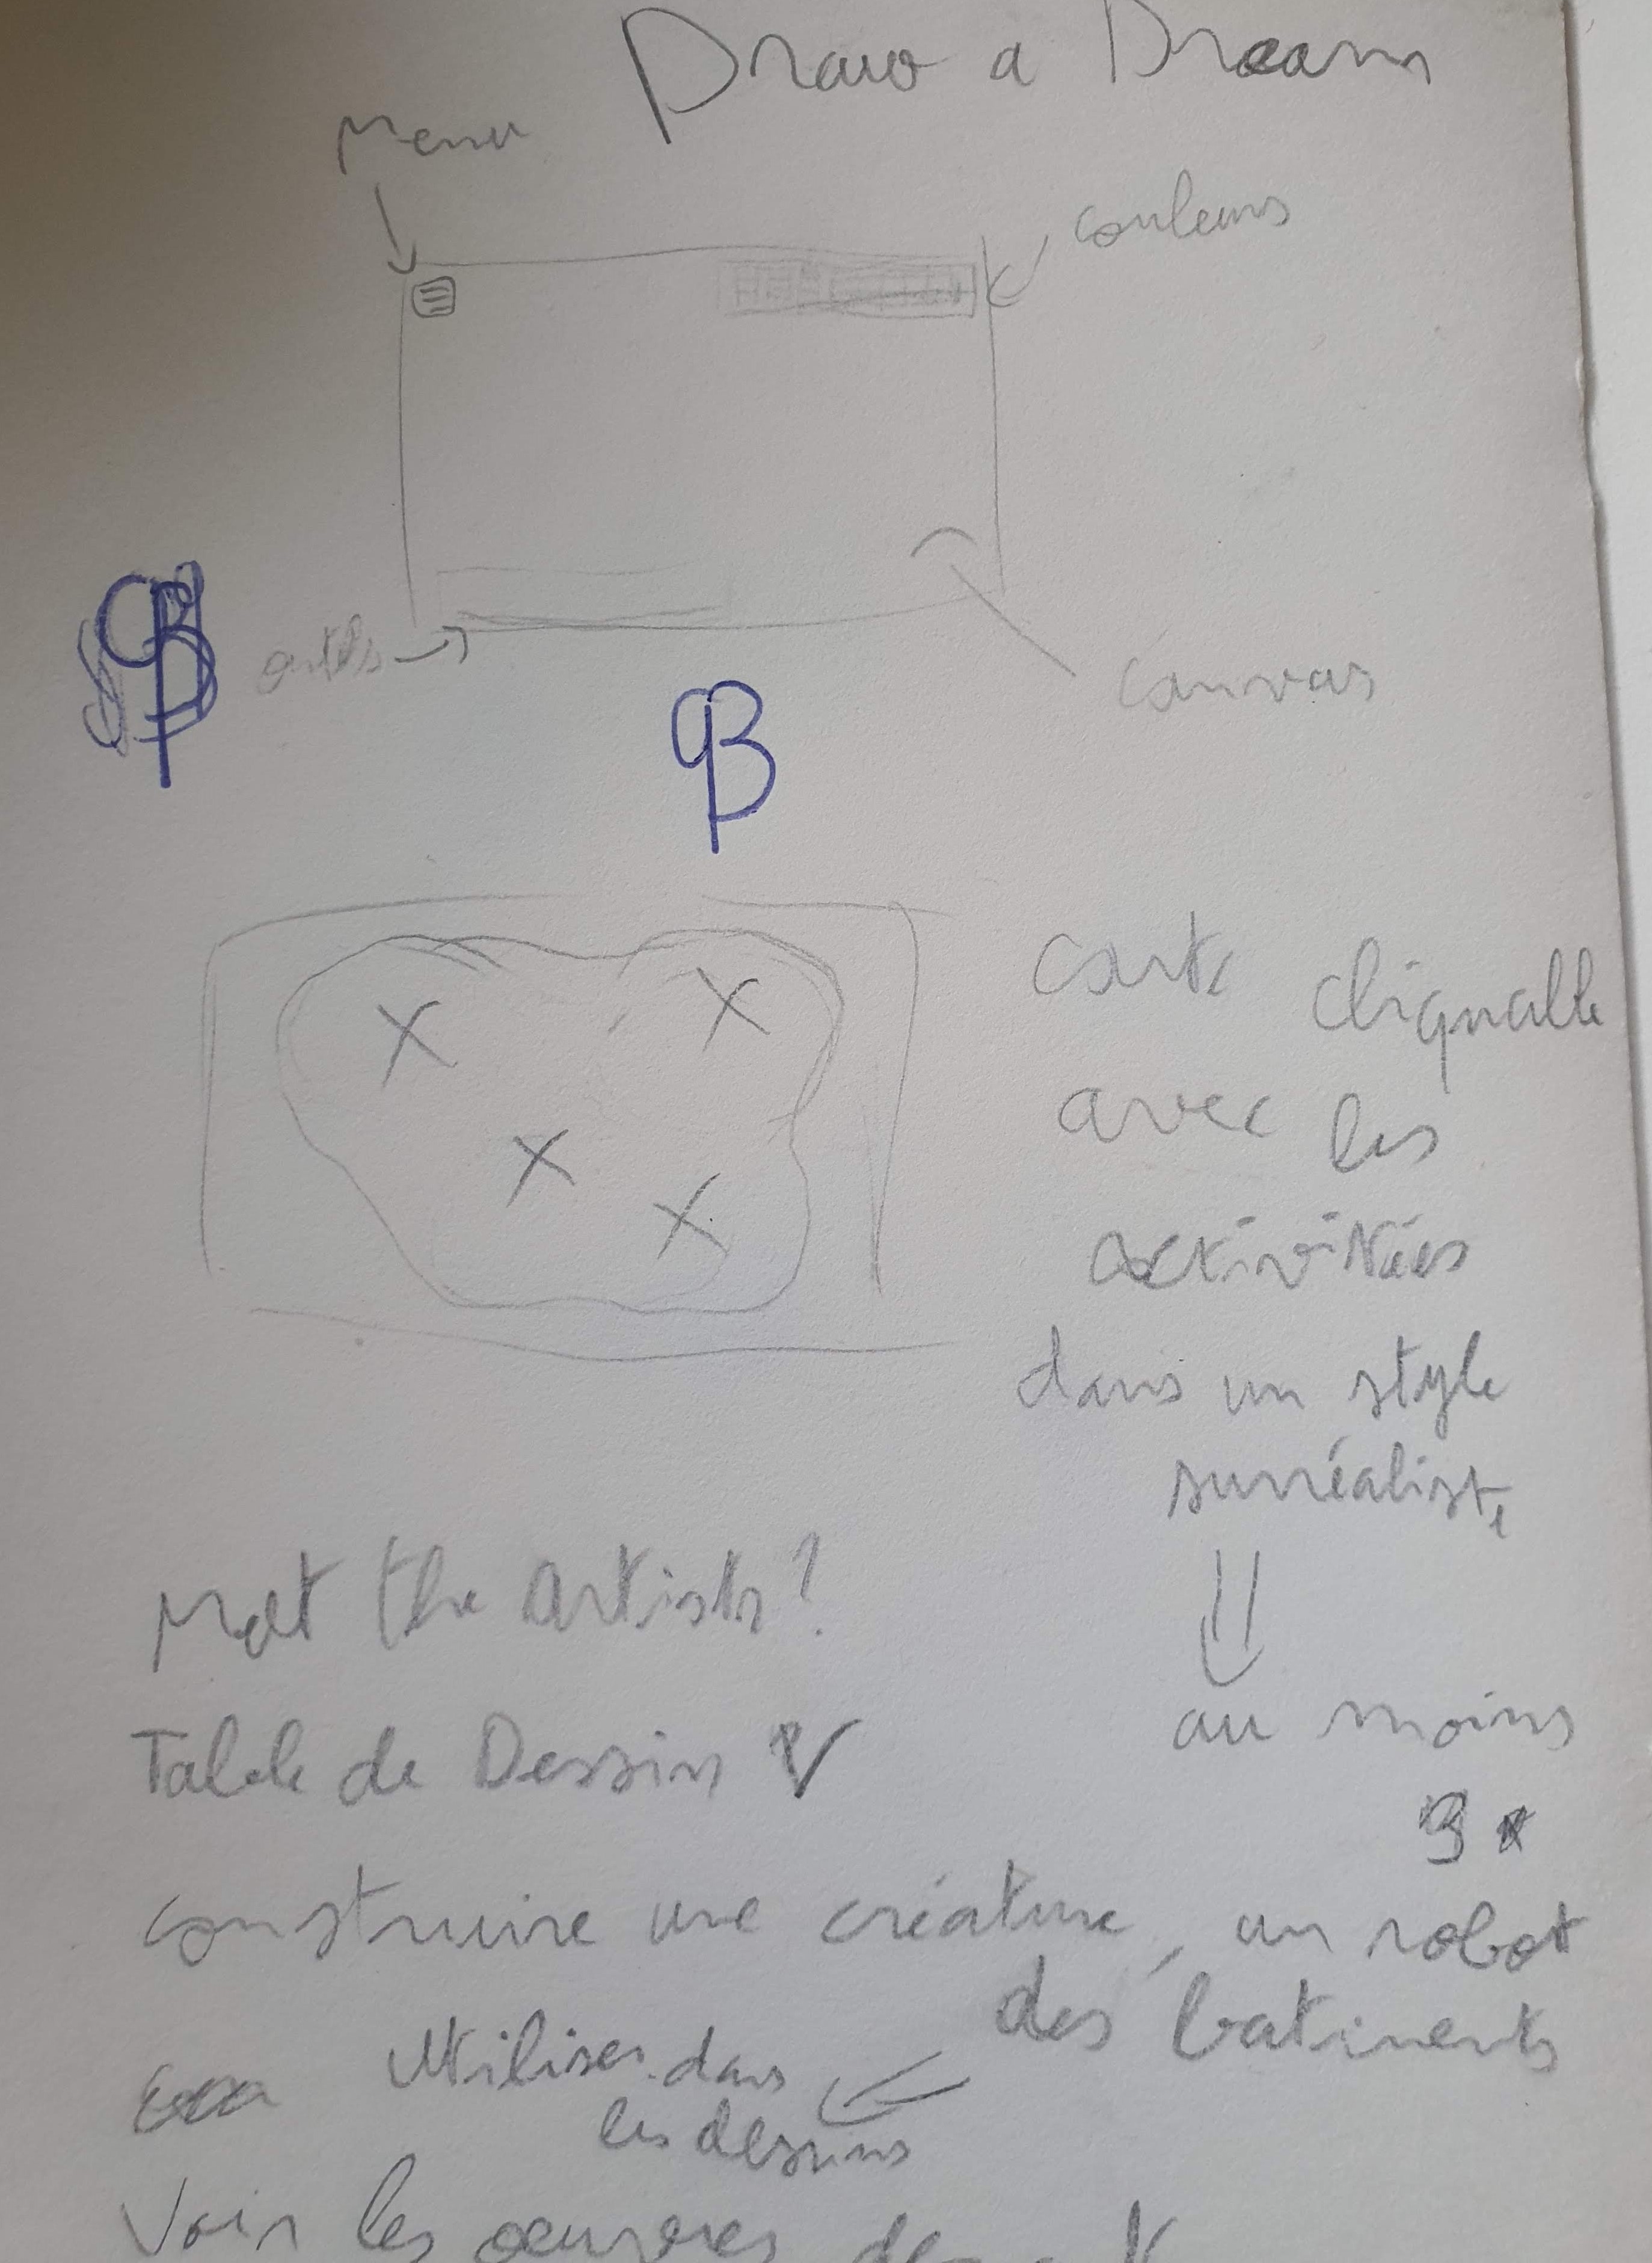 Draw a Dream
Menu
couleurs
outils
canvas
carte cliquable
avec les
activitées
dans un style
surréaliste
au moins
3
Meet the Artists?
Table de Dessin
construire une créature, un robot
des batiments
Utiliser dans
les dessins
Voir les oeuvres